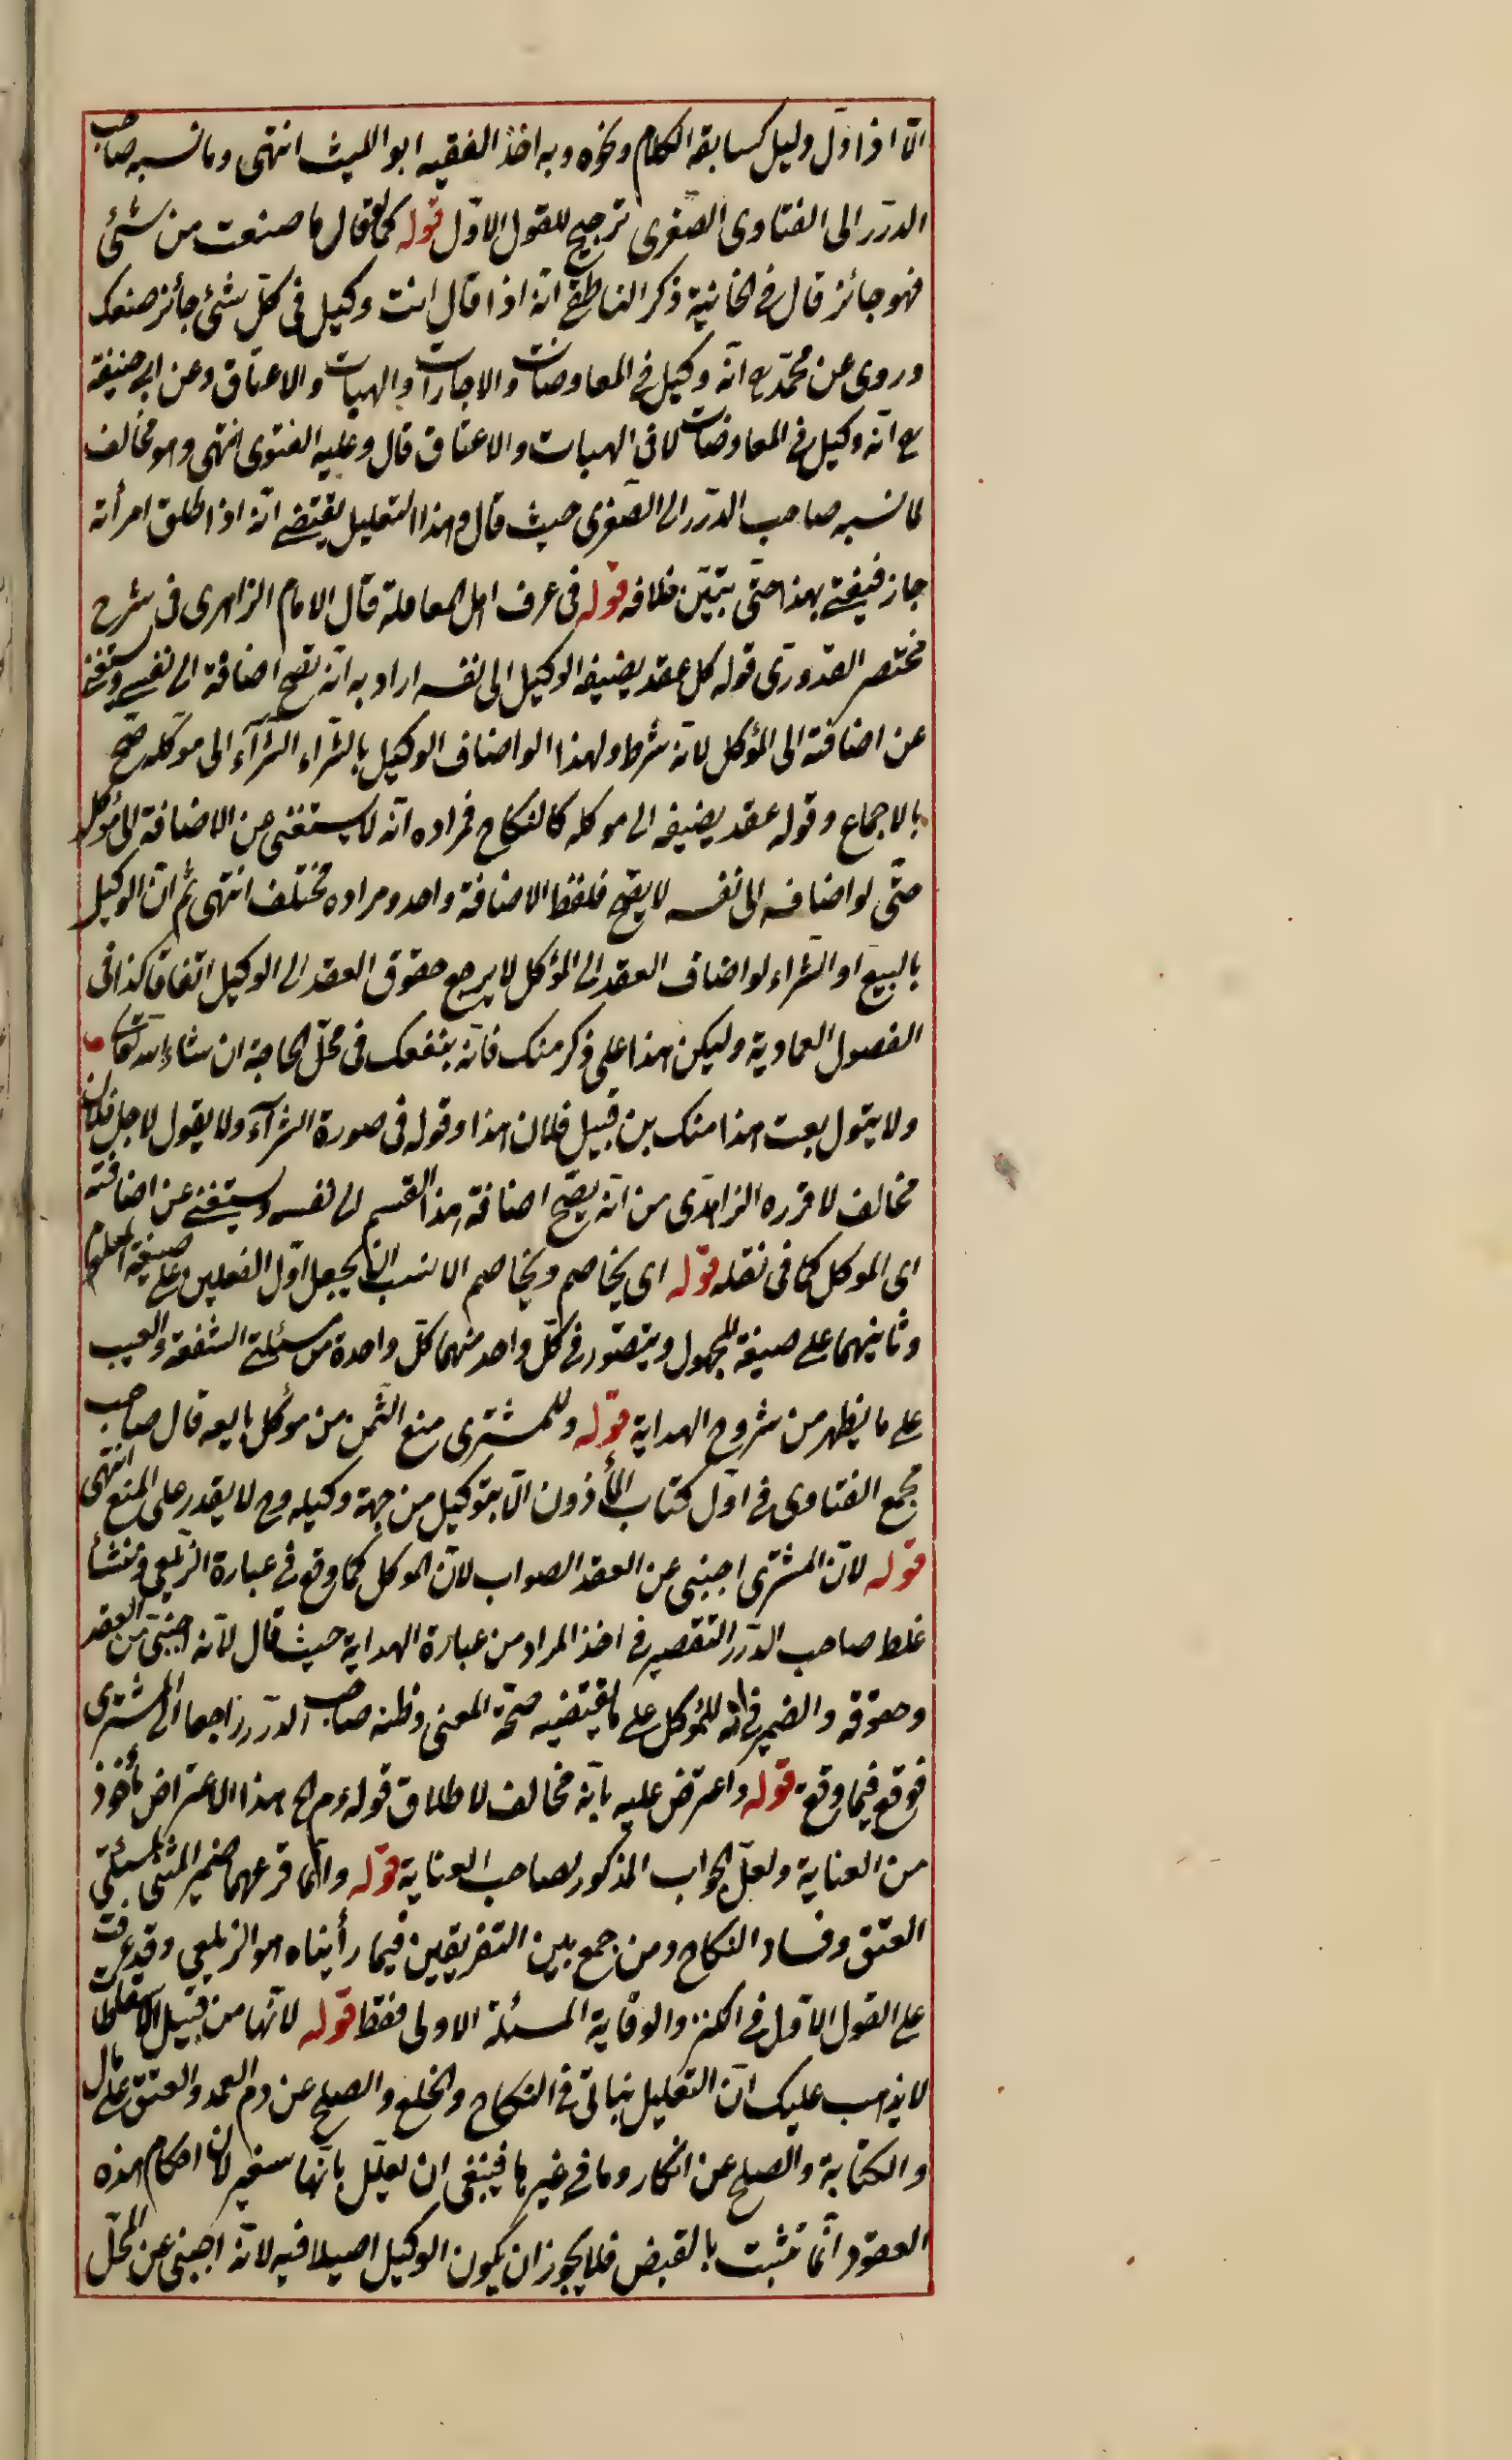 الا اذا دل دليل كسابقة الكلام ونحوه وبه اخذ الفقيه ابو الليث انتهى وما نسبه صاحب
الدرر الى الفتاوى الصغرى ترجيح للقول الاول قوله كما لو قال ما صنعت من شئ
فهو جائز قال فى الخانية ذكر الناطفى انه اذا قال انت وكيل فى كل شئ جائز صنعك
وروى عن محمد رح انه وكيل فى المعاوضات والاجارات والهبات والاعتاق وعن ابى حنيفة
رح انه وكيل فى المعاوضات لا فى الهبات والاعتاق قال وعليه الفتوى انتهى وهو مخالف
لما نسبه صاحب الدرر الى الصغرى حيث قال وهذا التعليل يقتضى انه اذا طلق امرأته
جاز فيفتى بهذا حتى يتبين خلافه قوله فى عرف اهل المعاملة قال الامام الزاهدى فى شرح
مختصر القدورى قوله كل عقد يضيفه الوكيل الى نفسه اراد به انه تصح اضافته الى نفسه ويستغنى
عن اضافته الى المؤكل لا انه شرط ولهذا لو اضاف الوكيل بالشراء الشراء الى موكله صح
بالاجماع وقوله عقد يضيفه الى موكله كالنكاح فمراده انه لا يستغنى عن الاضافة الى مؤكله
حتى لو اضافه الى نفسه لا يصح فلفظ الاضافة واحد ومراده مختلف انتهى ثم ان الوكيل
بالبيع او الشراء لو اضاف العقد الى المؤكل لا يرجع حقوق العقد الى الوكيل اتفاقا كذا فى
الفصول العمادية وليكن هذا على ذكر منك فانه ينفعك فى محل الحاجة ان شاء الله تعالى
ولا يقول بعت هذا منك من قبيل فلان هذا وقوله فى صورة الشراء ولا يقول لاجل فلان
مخالف لما قرره الزاهدى من انه يصح اضافة هذا القسم الى نفسه ويستغنى عن اضافته
اى الموكل كما فى نقله قوله اى يخاصم ويخاصم الانسب ان يجعل اول الفعلين على صيغة المعلوم
وثانيهما على صيغة المجهول ويتصور فى كل واحد منهما كل واحدة من مسئلتى الشفعة والعيب
على ما يظهر من شروح الهداية قوله وللمشترى منع الثمن من موكل بايعه قال صاحب
مجمع الفتاوى فى اول كتاب المأذون الا بتوكيل من جهة وكيله وح لا يقدر على المنع انتهى
قوله لان المشترى اجنبى عن العقد الصواب لان الموكل كما وقع فى عبارة الزيلعى ومنشأ
غلط صاحب الدرر التقصير فى اخذ المراد من عبارة الهداية حيث قال لانه اجنبى عن العقد
وحقوقه والضمير فى انه للمؤكل على ما يقتضيه صحة المعنى وظنه صاحب الدرر راجعا الى المشترى
فوقع فيما وقع قوله واعترض عليه بانه مخالف لاطلاق قوله عم الح هذا الاعتراض مأخوذ
من العناية ولعل الجواب المذكور لصاحب العناية قوله وانما فرعهما ضمير المثنى لمسئلتى
العتق وفساد النكاح ومن جمع بين التفريقين فيما رأيناه هو الزيلعى وقد عرفت
على القول الاول فى الكنز والوقاية المسئلة الاولى فقط قوله لانها من قبيل الاسقاطات
لا يذهب عليك ان التعليل يتأتى فى النكاح والخلع والصلح عن دم العمد والعتق على مال
والكتابة والصلح عن انكار وما فى غيرها فينبغى ان يعلل بانها سفير لان احكام هذه
العقود انما تثبت بالقبض فلا يجوز ان يكون الوكيل اصيلا فيه لانه اجنبى عن المحل